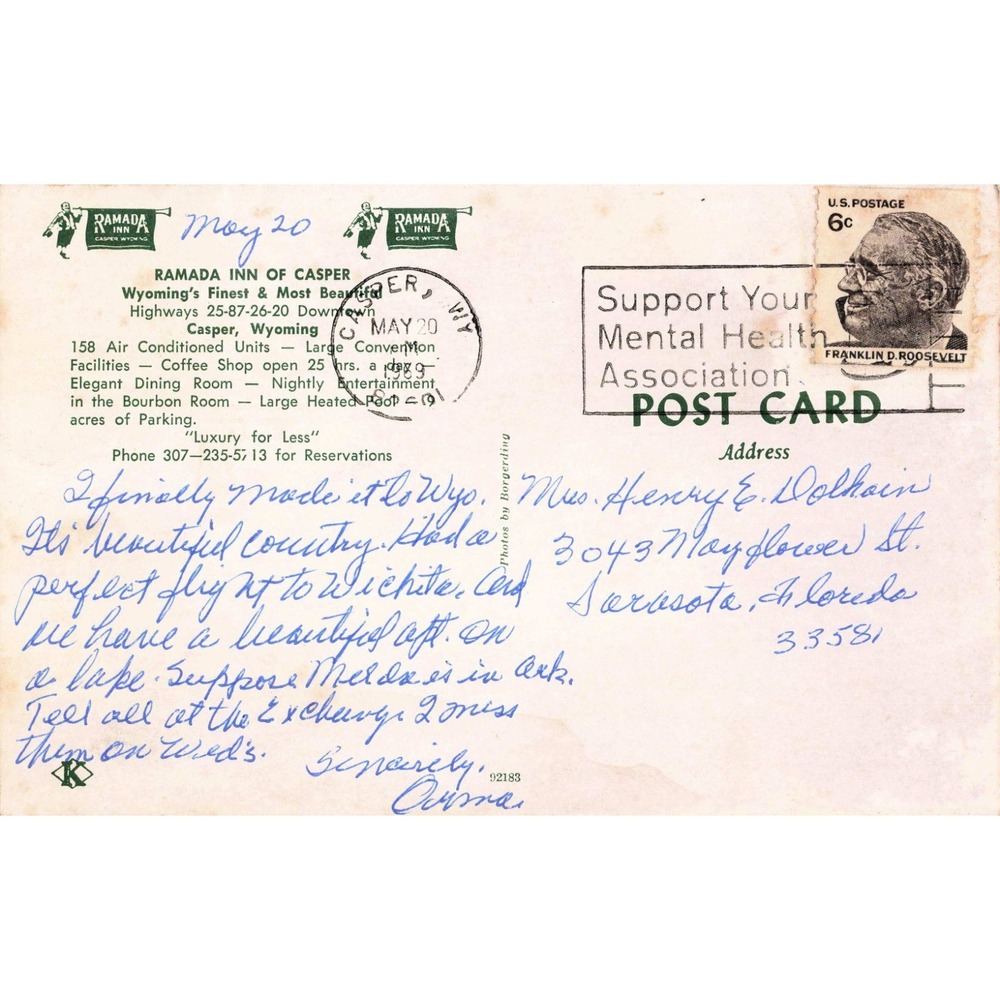 RAMADA INN
CASPER, WYOMING
May 20
RAMADA INN
CASPER, WYOMING
RAMADA INN OF CASPER
Wyoming's Finest & Most Beautiful
Highways 25-87-26-20 Downtown
Casper, Wyoming
158 Air Conditioned Units — Large Convention
Facilities — Coffee Shop open 25 hrs. a day —
Elegant Dining Room — Nightly Entertainment
in the Bourbon Room — Large Heated Pool — 19
acres of Parking.
"Luxury for Less"
Phone 307—235-5713 for Reservations
CASPER, WY
MAY 20
1969
U.S. POSTAGE
6c
FRANKLIN D. ROOSEVELT
Support Your
Mental Health
Association
POST CARD
Address
I finally made it to Wyo.
It's beautiful country. Had a
perfect flight to Wichita. And
we have a beautiful apt. on
a lake. Suppose Melda is in Ark.
Tell all at the Exchange I miss
them on Wed's.
Sincerely,
Photos by Borgerding
Mrs. Henry E. Dolhain
3043 Mayflower St.
Sarasota, Florida
33581
K
92183